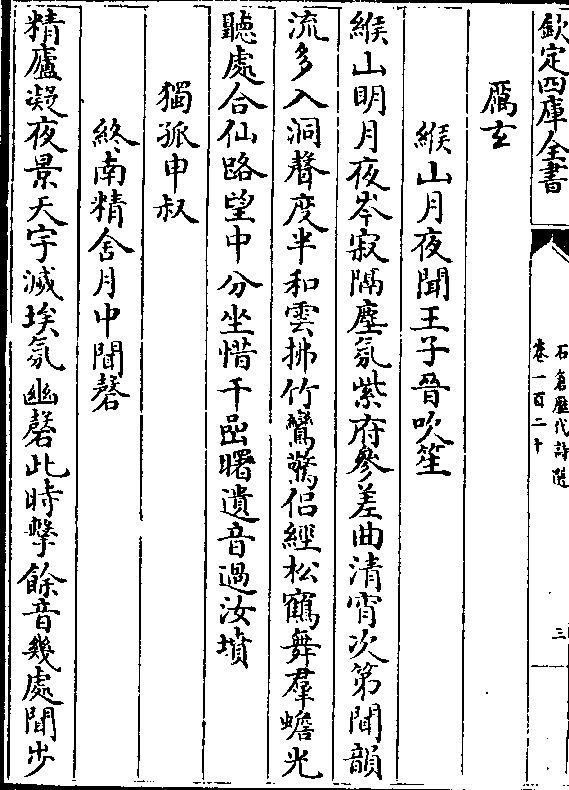 欽定四庫全書
石倉歷代詩選
卷一百二十
三
厲玄
緱山月夜聞王子晉吹笙
緱山明月夜岑寂隔塵氛紫府參差曲清宵次第聞韻
流多入洞聲度半和雲拂竹鸞驚侣經松鶴舞羣蟾光
聽處合仙路望中分坐惜千嵒曙遺音過汝墳
獨孤申叔
終南精舍月中聞磬
精廬凝夜景天宇滅埃氛幽磬此時擊餘音幾處聞步